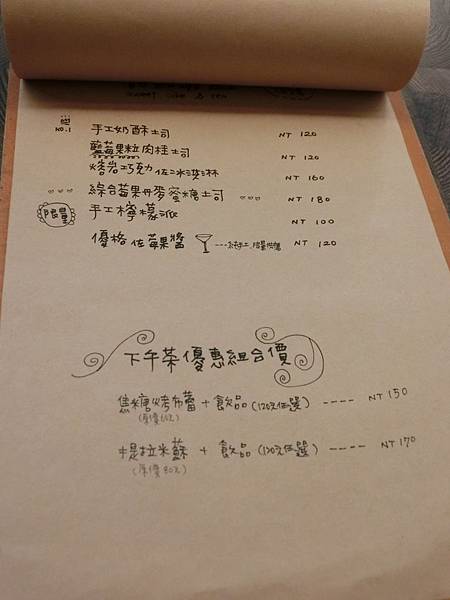 NO.1 手工奶酥土司 NT 120
藍莓果粒肉桂土司 NT 120
烤岩巧克力佐冰淇淋 NT 160
綜合莓果丹麥蜜糖土司 NT 180
限量 手工檸檬派 NT 100
優格佐莓果醬 NT 120
下午茶優惠組合價
焦糖烤布蕾 + 飲品(120元任選) ---- NT 150
(原價60元)
提拉米蘇 + 飲品(120元任選) ---- NT 170
(原價80元)